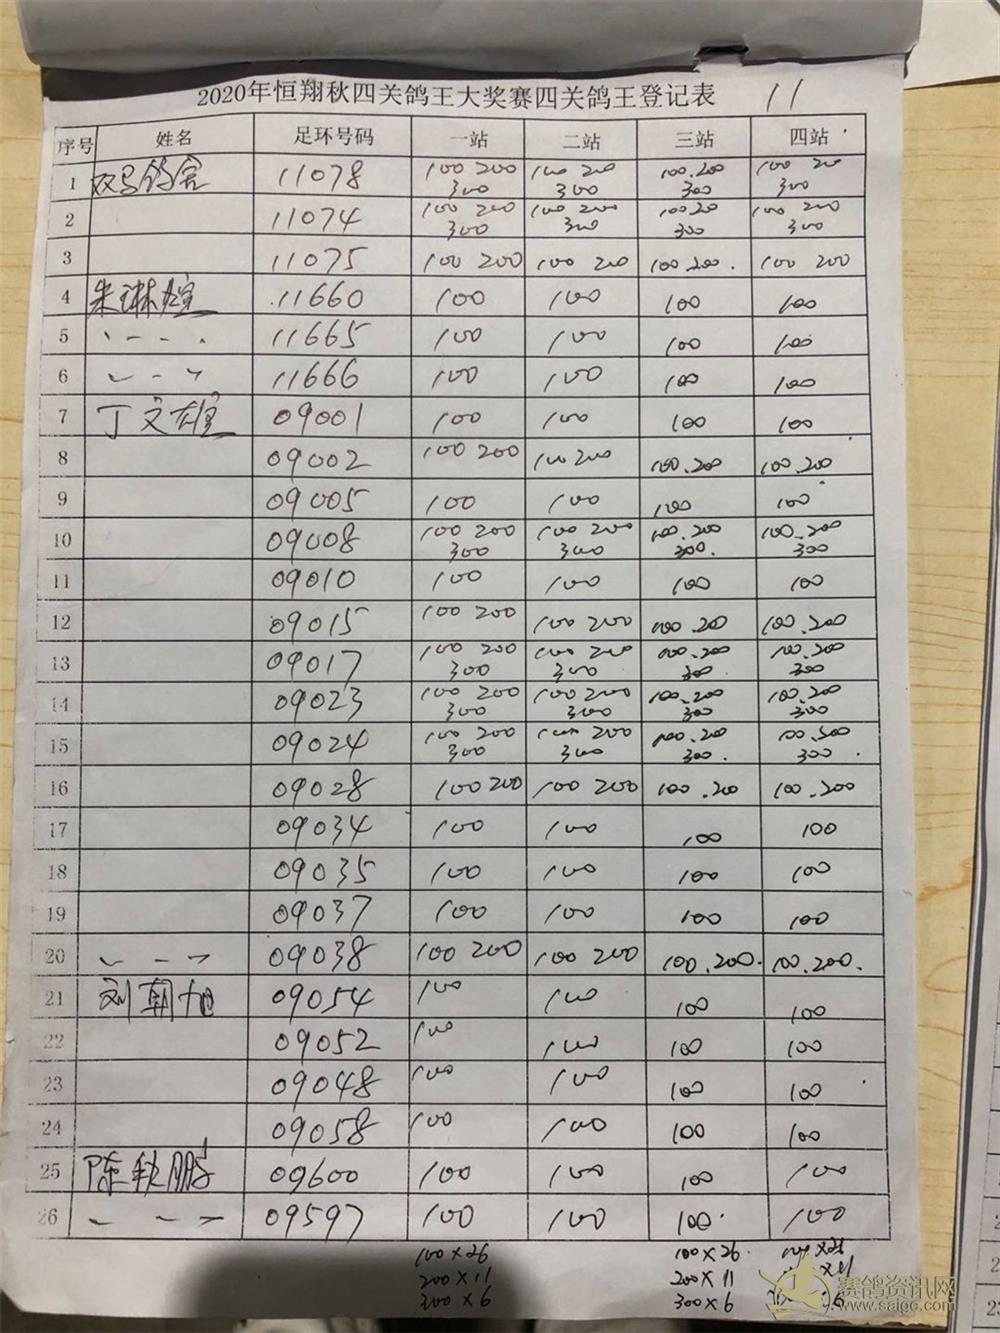 2020年恒翔秋四关鸽王大奖赛四关鸽王登记表 11
序号 姓名 足环号码 一站 二站 三站 四站
1 双马鸽舍 11078 100 200 300 100 200 300 100.200 300 100 200 300
2 11074 100 200 300 100 200 300 100.200 300 100 200 300
3 11075 100 200 100 200 100.200. 100 200
4 朱琳煊 11660 100 100 100 100
5 、 - - 、 11665 100 100 100 100
6 、 - 、 11666 100 100 100 100
7 丁文雄 09001 100 100 100 100
8 09002 100 200 100 200 100.200 100.200
9 09005 100 100 100 100
10 09008 100 200 300 100 200 300 100.200 300. 100.200 300
11 09010 100 100 100 100
12 09015 100 200 100 200 100.200 100.200
13 09017 100 200 300 100 200 300 100.200 300 100.200 300
14 09023 100 200 300 100 200 300 100.200 300 100.200 300
15 09024 100 200 300 100 200 300 100.200 300. 100.300 300.
16 09028 100 200 100 200 100.200 100.200
17 09034 100 100 100 100
18 09035 100 100 100 100
19 09037 100 100 100 100
20 、 - 、 09038 100 200 100 200 100.200. 100.200.
21 刘朝旭 09054 100 100 100 100
22 09052 100 100 100 100
23 09048 100 100 100 100
24 09058 100 100 100 100
25 陈秋鹏 09600 100 100 100 100
26 、 - 、 09597 100 100 100. 100
100×26 100×26. 100×26
200×11 200×11 ×11
300×6 300×6 ×6
赛鸽资讯网
www.saige.com